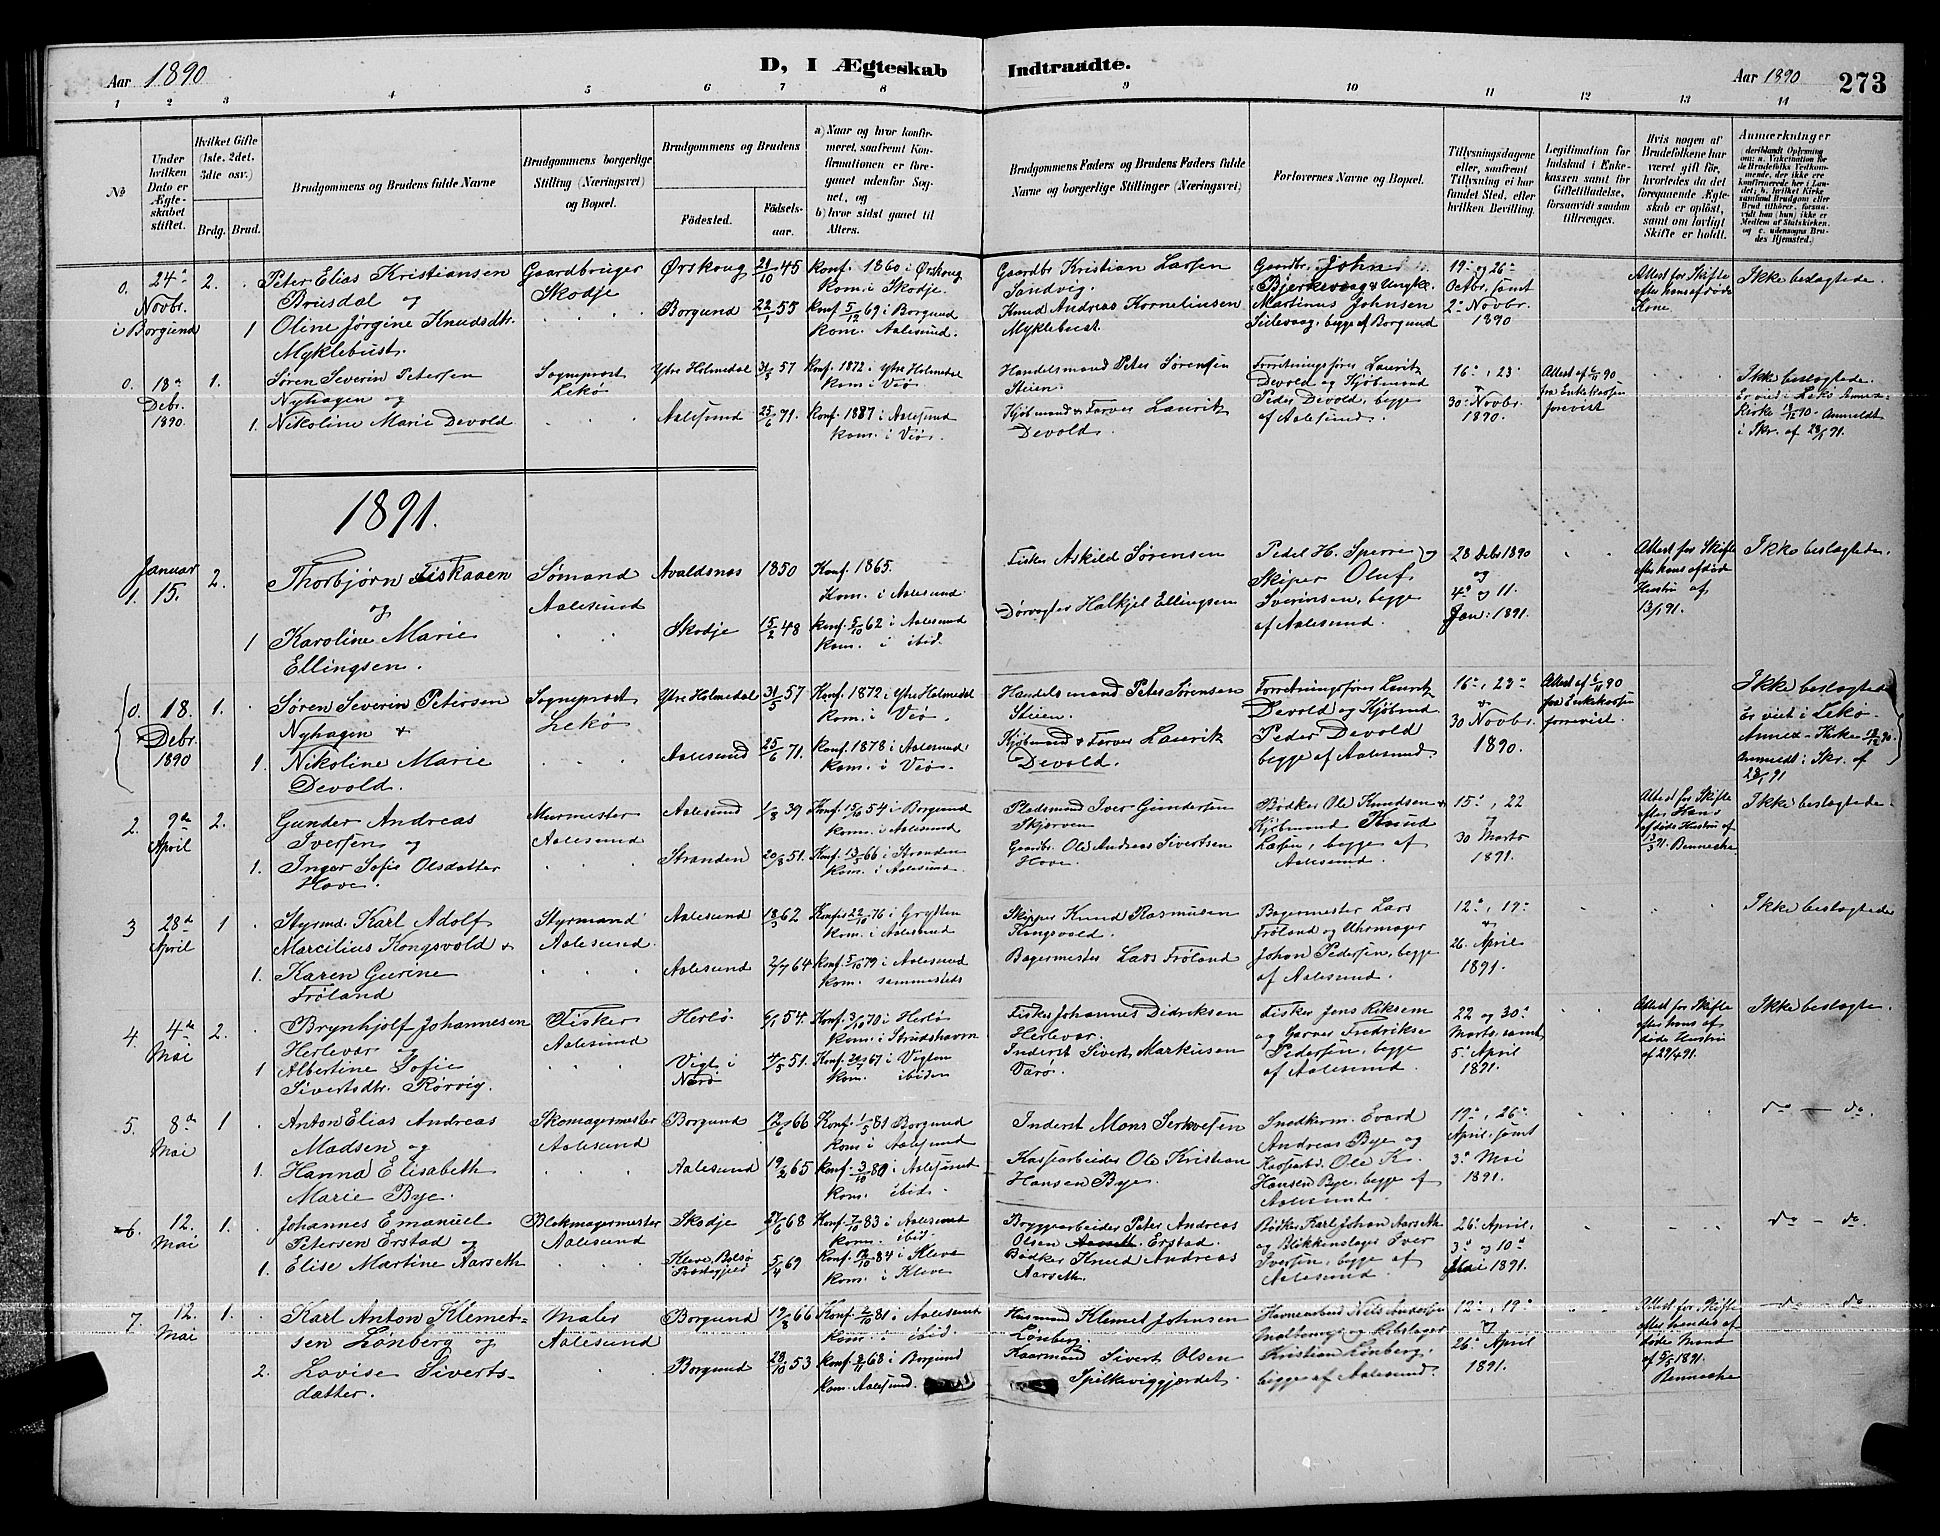 Aar 1890
D, I Ægteskab Indtraadte.
Aar 1890 273
1 2 3 4 5 6 7 8 9 10 11 12 13 14
No
Under hvilken Dato er Ægteskabet stiftet.
Hvilket Gifte (1ste, 2det, 3die osv.)
Brdg. Brud.
Brudgommens og Brudens fulde Navne
Brudgommens borgerlige Stilling (Næringsvei) og Bopæl.
Brudgommens og Brudens
Fødested. Fødselsaar.
a) Naar og hvor konfirmeret, saafremt Konfirmationen er foregaaet udenfor Sognet, og
b) hvor sidst gaaet til Alters.
Brudgommens Faders og Brudens Faders fulde Navne og borgerlige Stillinger (Næringsvei)
Forlovernes Navne og Bopæl.
Tillysningsdagene eller, saafremt Tillysning ei har fundet Sted, efter hvilken Bevilling.
Legitimation for Indskud i Enkekassen samt for Giftetilladelse, forsaavidt saadan tiltrænges.
Hvis nogen af Brudefolkene har været gift før, hvorledes da det foregaaende Ægteskab er opløst, samt om lovligt Skifte er holdt.
Anmærkninger
0. 24de Novbr. i Borgund 2. Peter Elias Kristiansen Brusdal og
Gaardbruger Skodje Ørskoug 45 Konf. 1860 i Ørskoug Kom. i Skodje.
Gaardbr. Kristian Larsen Sandvig.
1 Oline Jørgine Knudsdtr. Myklebust.
Borgund 22/1 55 Konf 5/12 69 i Borgund Kom. Aalesund.
Knud Andreas Korneliussen Myklebust.
Martinus Johnsen begge af Borgund
19de og 26de Octbr. samt 2den Novbr. 1890
Attest for Skifte efter hans afdøde Kone
Ikke beslagtede.
0. 18de Debr. 1890 1. Søren Severin Petersen Nyhagen og
Sogneprest Lekø Ytre Holmedal 31/5 57 Konf. 1872 i Ytre Holmedal Kom i Viø.
Handelsmand Peter Sørensen Steien.
1. Nikoline Marie Devold
Aalesund 25/6 71. Konf. 1887 i Aalesund Kom. i Viø.
Kjøbmand & Farver Laurits Devold.
Forretningsfører Lauritz Devold og Kjøbmand Peder Devold, begge af Aalesund.
16de, 23de & 30te Novbr. 1890.
Attest af 90 fra Enkekassen forevist
Ikke beslagtede. Er viet i Lekø Annex-Kirke 18/12 90. Anmeldt i Skr. af 23/1 91.
1891.
1. Januar 15. 2. Thorbjørn Fiskaaen og
Sømand Aalesund Avaldsnæs 1850 Konf. 1865. Kom. i Aalesund
Fisker Askild Sørensen
1 Karoline Marie Ellingsen.
Skodje 15/2 48 Konf. 5/10 62 i Aalesund Kom. i ibid.
Dørvogter Halkjel Ellingsen
Pedel H. Sperre og Skiper Oluf Sverinsen, begge af Aalesund.
28 Debr 1890 og 4de og 11. Jan. 1891.
Attest for Skifte efter hans afdøde Hustru af 13/1 91.
Ikke beslagtede.
0. 18. Debr. 1890 1. Søren Severin Petersen Nyhagen &
Sogneprest Lekø Ytre Holmedal 31/5 57 Konf. 1872 i Ytre Holmedal Kom. i Viø.
Handelsmand Peter Sørensen Steien.
1. Nikoline Marie Devold.
Aalesund 25/6 71. Konf. 1878 i Aalesund Kom. i Viø.
Kjøbmand & Farver Lauritz Devold.
Forretningsfører Lauritz Devold og Kjøbmd Peder Devold begge af Aalesund.
16de, 23de & 30 Novbr. 1890.
Attest af 90 fra Enkekassen forevist.
Ikke beslagtede Er viet i Lekø Annex-Kirke 18/12 90. Anmeldt i Skr. af 23/1 91
2. 9de April 2. Gunder Andreas Iversen og
Murmester Aalesund Aalesund 1/8 39 Konf 15/10 54 i Borgund Kom. i Aalesund
Pladsmand Iver Gundersen Skjerven
1. Inger Sofie Olsdatter Hove.
Stranden 20/8 51. Konf. 13/5 66 i Stranden Kom. i Aalesund.
Gaardbr. Ole Andreas Sivertsen Hove.
Bødker Ole Knudsen & Kjøbmand Knud begge af Aalesund.
15de, 22 & 30 Marts 1891.
Attest for Skifte efter Hans afdøde Hustru af 13/3 91. Benneche
Ikke beslagtede.
3 28de April 1 Styrmd. Karl Adolf Marcilius Kongsvold &
Styrmand Aalesund. Aalesund 18/3 62 Konf. 22/10 76 i Grytten Kom. i Aalesund
Skipper Knud Rasmusen Kongsvold.
1. Karen Gurine Frøland
Aalesund 2/7 64 Konf. 5/10 79 i Aalesund Kom. sammesteds
Bagermester Lars Frøland
Bagermester Lars Frøland og Uhrmager Johan Pedersen, begge af Aalesund.
12de, 19de & 26. April 1891.
Ikke beslagtede
4. 4de Mai 2. Brynhjolf Johannesen Herlevær og
Fisker Aalesund Herlø. 6/1 54. Konf. 3/10 70 i Herlø Kom. i Strudshavn
Fisker Johannes Didriksen Herlevær.
1 Albertine Sofie Sivertsdtr. Rørvig.
Vigt. i Nærø 4/5 51. Konf. 67 i Vigten Kom. ibiden
Inderst Sivert Markusen Varø.
Fisker Jens Riksem og Garver Fredrikse Pedersen, begge af Aalesund.
22 og 30te Marts samt 5te April 1891.
Attest for Skifte efter hans afdøde Hustru af 29/4 91.
Ikke beslagtede.
5. 8de Mai 1 Anton Elias Andreas Madsen og
Skomagermester Aalesund Borgund 12/6 66 Konf. 1/5 81 Borgund Kom i Aalesund
Inderst Mons Serkvesen
1. Hanna Elisabeth Marie Bye.
Aalesund 19/2 65 Konf. 3/10 80 i Aalesund Kom. ibid.
Havnearbeider Ole Kristian Hansen Bye.
Snedkerm. Evard Andreas Bye og Ole K. Hansen Bye, begge af Aalesund.
19de, 26de April, samt 3de Mai 1891.
do — do.
6. 12. Mai 1. Johannes Emanuel Petersen Erstad og
Blokmagermester Aalesund Skodje 27/6 68 Konf. 7/10 83 i Aalesund Kom. ibid.
Bryggearbeider Peter Andreas Olsen Erstad.
1. Elise Martine Aarseth
Kleve, Bolsø 5/4 69 Konf. 12/10 84 i Kleve Kom. i Kleve
Bødker Knud Andreas Aarseth.
Bødker Karl Johan Aarseth og Blikkenslager Iver Iversen, begge af Aalesund.
26de April, 3de og 10de Mai 1891.
do — do.
7. 12. Mai 1. Karl Anton Klemetsen Lønberg og
Maler Aalesund Borgund 19/8 66 Konf. 2/10 81 i Aalesund Kom. ibid.
Husmand Klemet Johnsen Lønberg.
2. Lovise Sivertsdatter.
Borgund 28/10 53 Konf. 3/11 68 i Borgund Kom. Aalesund.
Kaarmand Sivert Olsen Spilkeviggjærdet.
Havnearbud Nils Andersen og Rebslager Kristian Lønberg, begge af Aalesund.
12de, 19de & 26de April 1891.
Attest for Skifte efter hendes afdøde Mand af 5/5 1891. Benneche
do — do